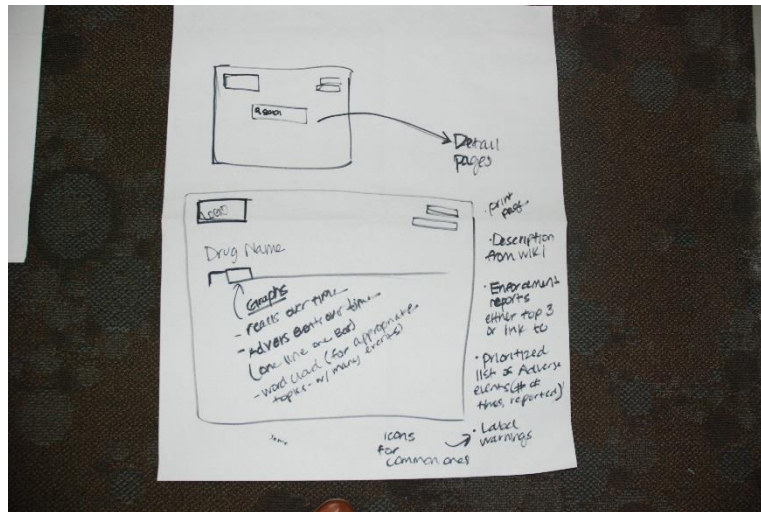 search
Detail
pages
Logo
Drug Name
Graphs
- recalls over time
- Advers Events over time
(one line one Bar)
- word cloud (for appropriate
topics - w/ many entries)
· print
page
· Description
from wiki
· Enforcement
reports
either top 3
or link to
· Prioritized
list of Adverse
events (# of
times reported)
· Label
warnings
icons
for
common ones